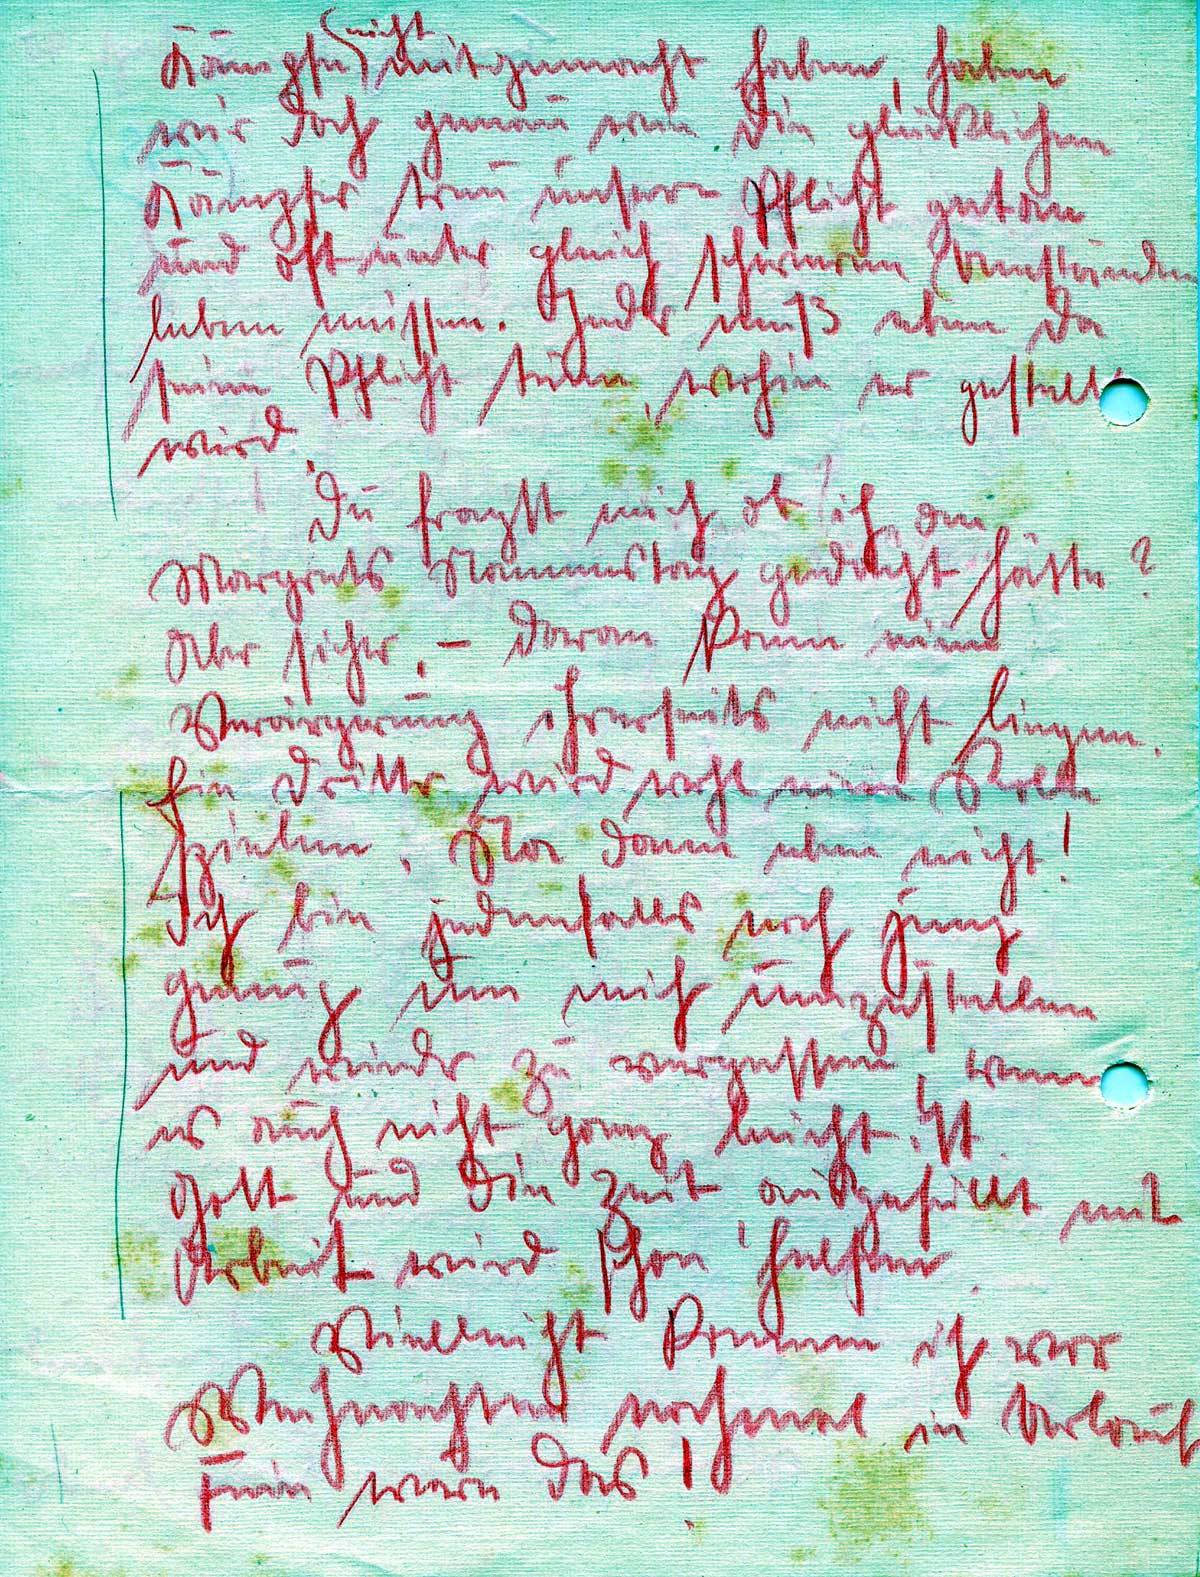 Kämpfe nicht mitgemacht haben, haben
wir doch genau wie die glücklichen
Kämpfer treu unsere Pflicht getan
und oft unter gleich schweren Umständen
leben müssen. Jeder muß eben da
seine Pflicht tun, wohin er gestellt
wird.
Du fragst mich, ob ich an
Margrets Namenstag gedacht hätte?
Aber sicher, – daran kann eine
Verärgerung ihrerseits nicht liegen.
Ein dritter wird wohl eine Rolle
spielen. Na dann eben nicht!
Ich bin jedenfalls noch jung
genug um mich umzustellen
und wieder zu vergessen, wenn
es auch nicht ganz leicht ist.
Gott und die Zeit ausgefüllt mit
Arbeit wird schon helfen.
Vielleicht komme ich vor
Weihnachten nochmal in Urlaub
Fein wäre das!